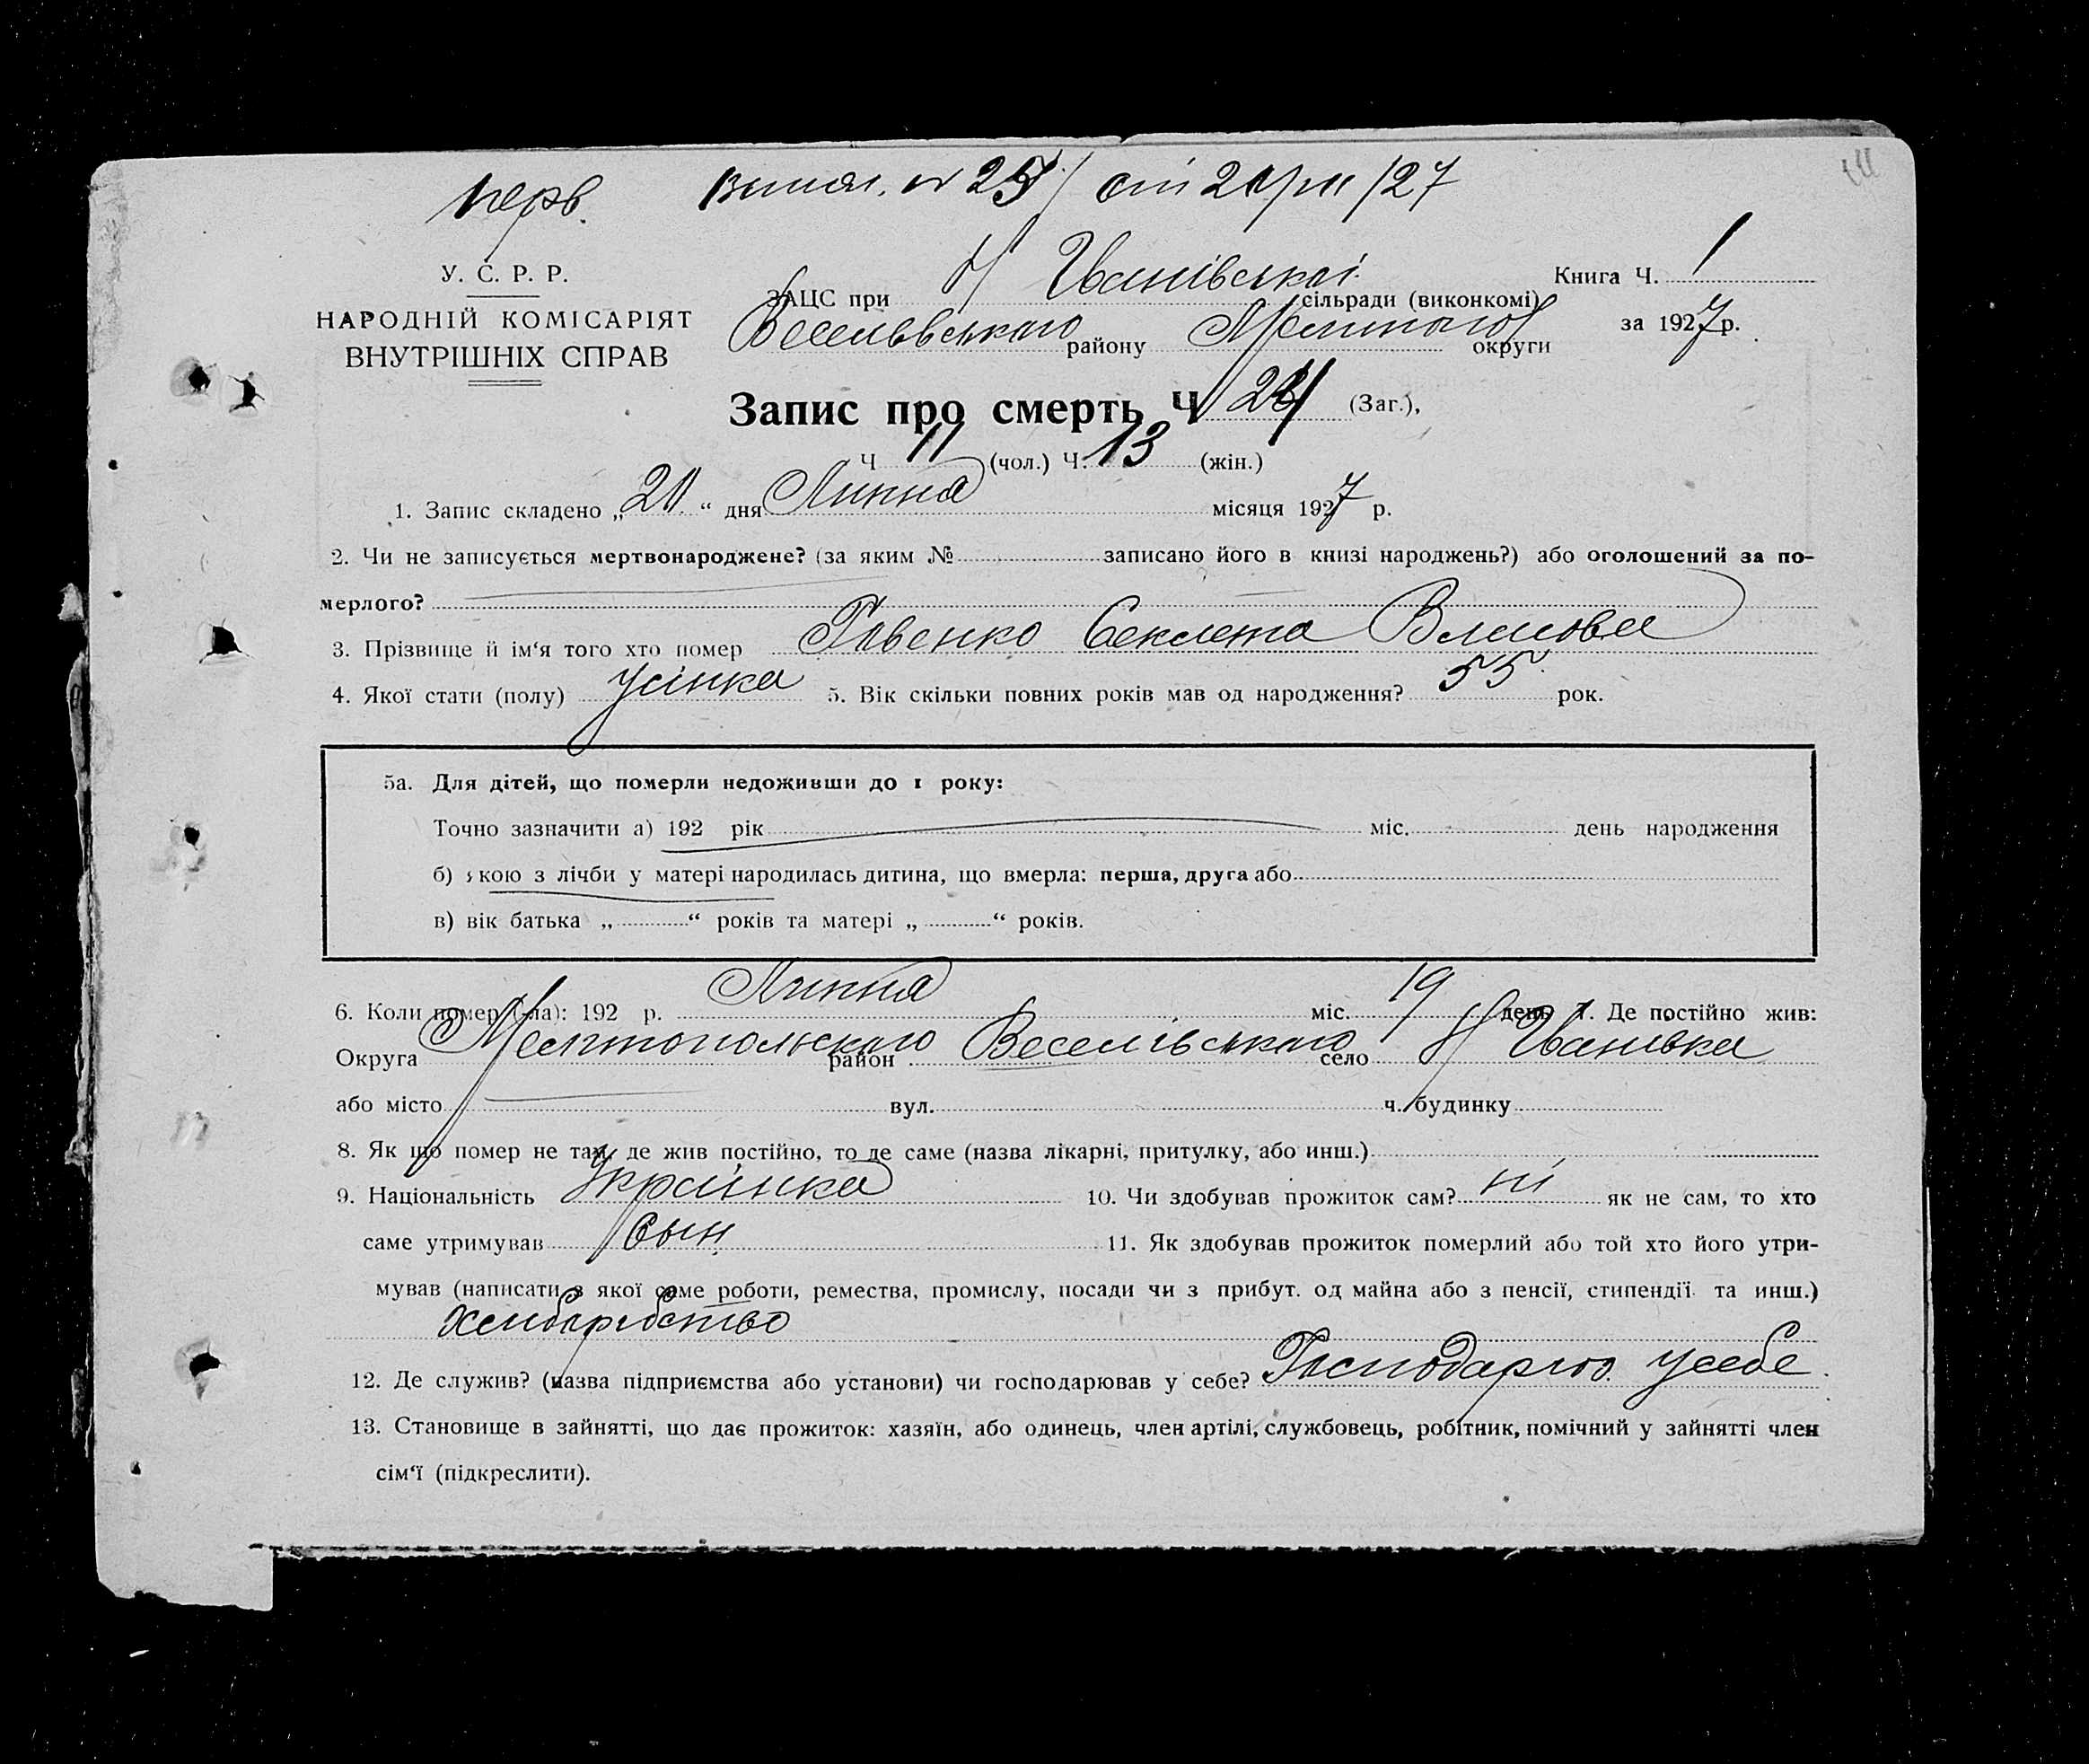 перв. от 20/VII/27
У. С. Р. Р.
НАРОДНІЙ КОМІСАРІЯТ
ВНУТРІШНІХ СПРАВ
ЗАЦС при Н Іванівській сільради (виконкомі)
Книга Ч. 1
Веселівського району Мелитоп округи
за 1927 р.
Запис про смерть Ч 24 (Заг.),
Ч 11 (чол.) Ч. 13 (жін.)
1. Запис складено „20“ дня Липня місяця 1927 р.
2. Чи не записується мертвонароджене? (за яким № записано його в книзі народжень?) або оголошений за по-
мерлого?
3. Прізвище й ім‘я того хто помер Секлета Власовна
4. Якої стати (полу) жінка 5. Вік скільки повних років мав од народження? 55 рок.
5а. Для дітей, що померли недоживши до 1 року:
Точно зазначити а) 192 рік міс. день народження
б) якою з лічби у матері народилась дитина, що вмерла: перша, друга або
в) вік батька „ “ років та матері „ “ років.
6. Коли помер (ла): 192 р. Липня міс. 19 день 7. Де постійно жив:
Округа Мелітопольского район Веселівського село Н Іванівка
або місто вул. ч. будинку
8. Як що помер не там, де жив постійно, то де саме (назва лікарні, притулку, або инш.)
9. Національність Українка 10. Чи здобував прожиток сам? ні як не сам, то хто
саме утримував сын 11. Як здобував прожиток померлий або той хто його утри-
мував (написати з якої саме роботи, ремества, промислу, посади чи з прибут. од майна або з пенсії, стипендії та инш.)
Хлибаробство
12. Де служив? (назва підприємства або установи) чи господарював у себе? Господарюв. усебе.
13. Становище в зайнятті, що дає прожиток: хазяїн, або одинець, член артілі, службовець, робітник, помічний у зайнятті член
сім‘ї (підкреслити).